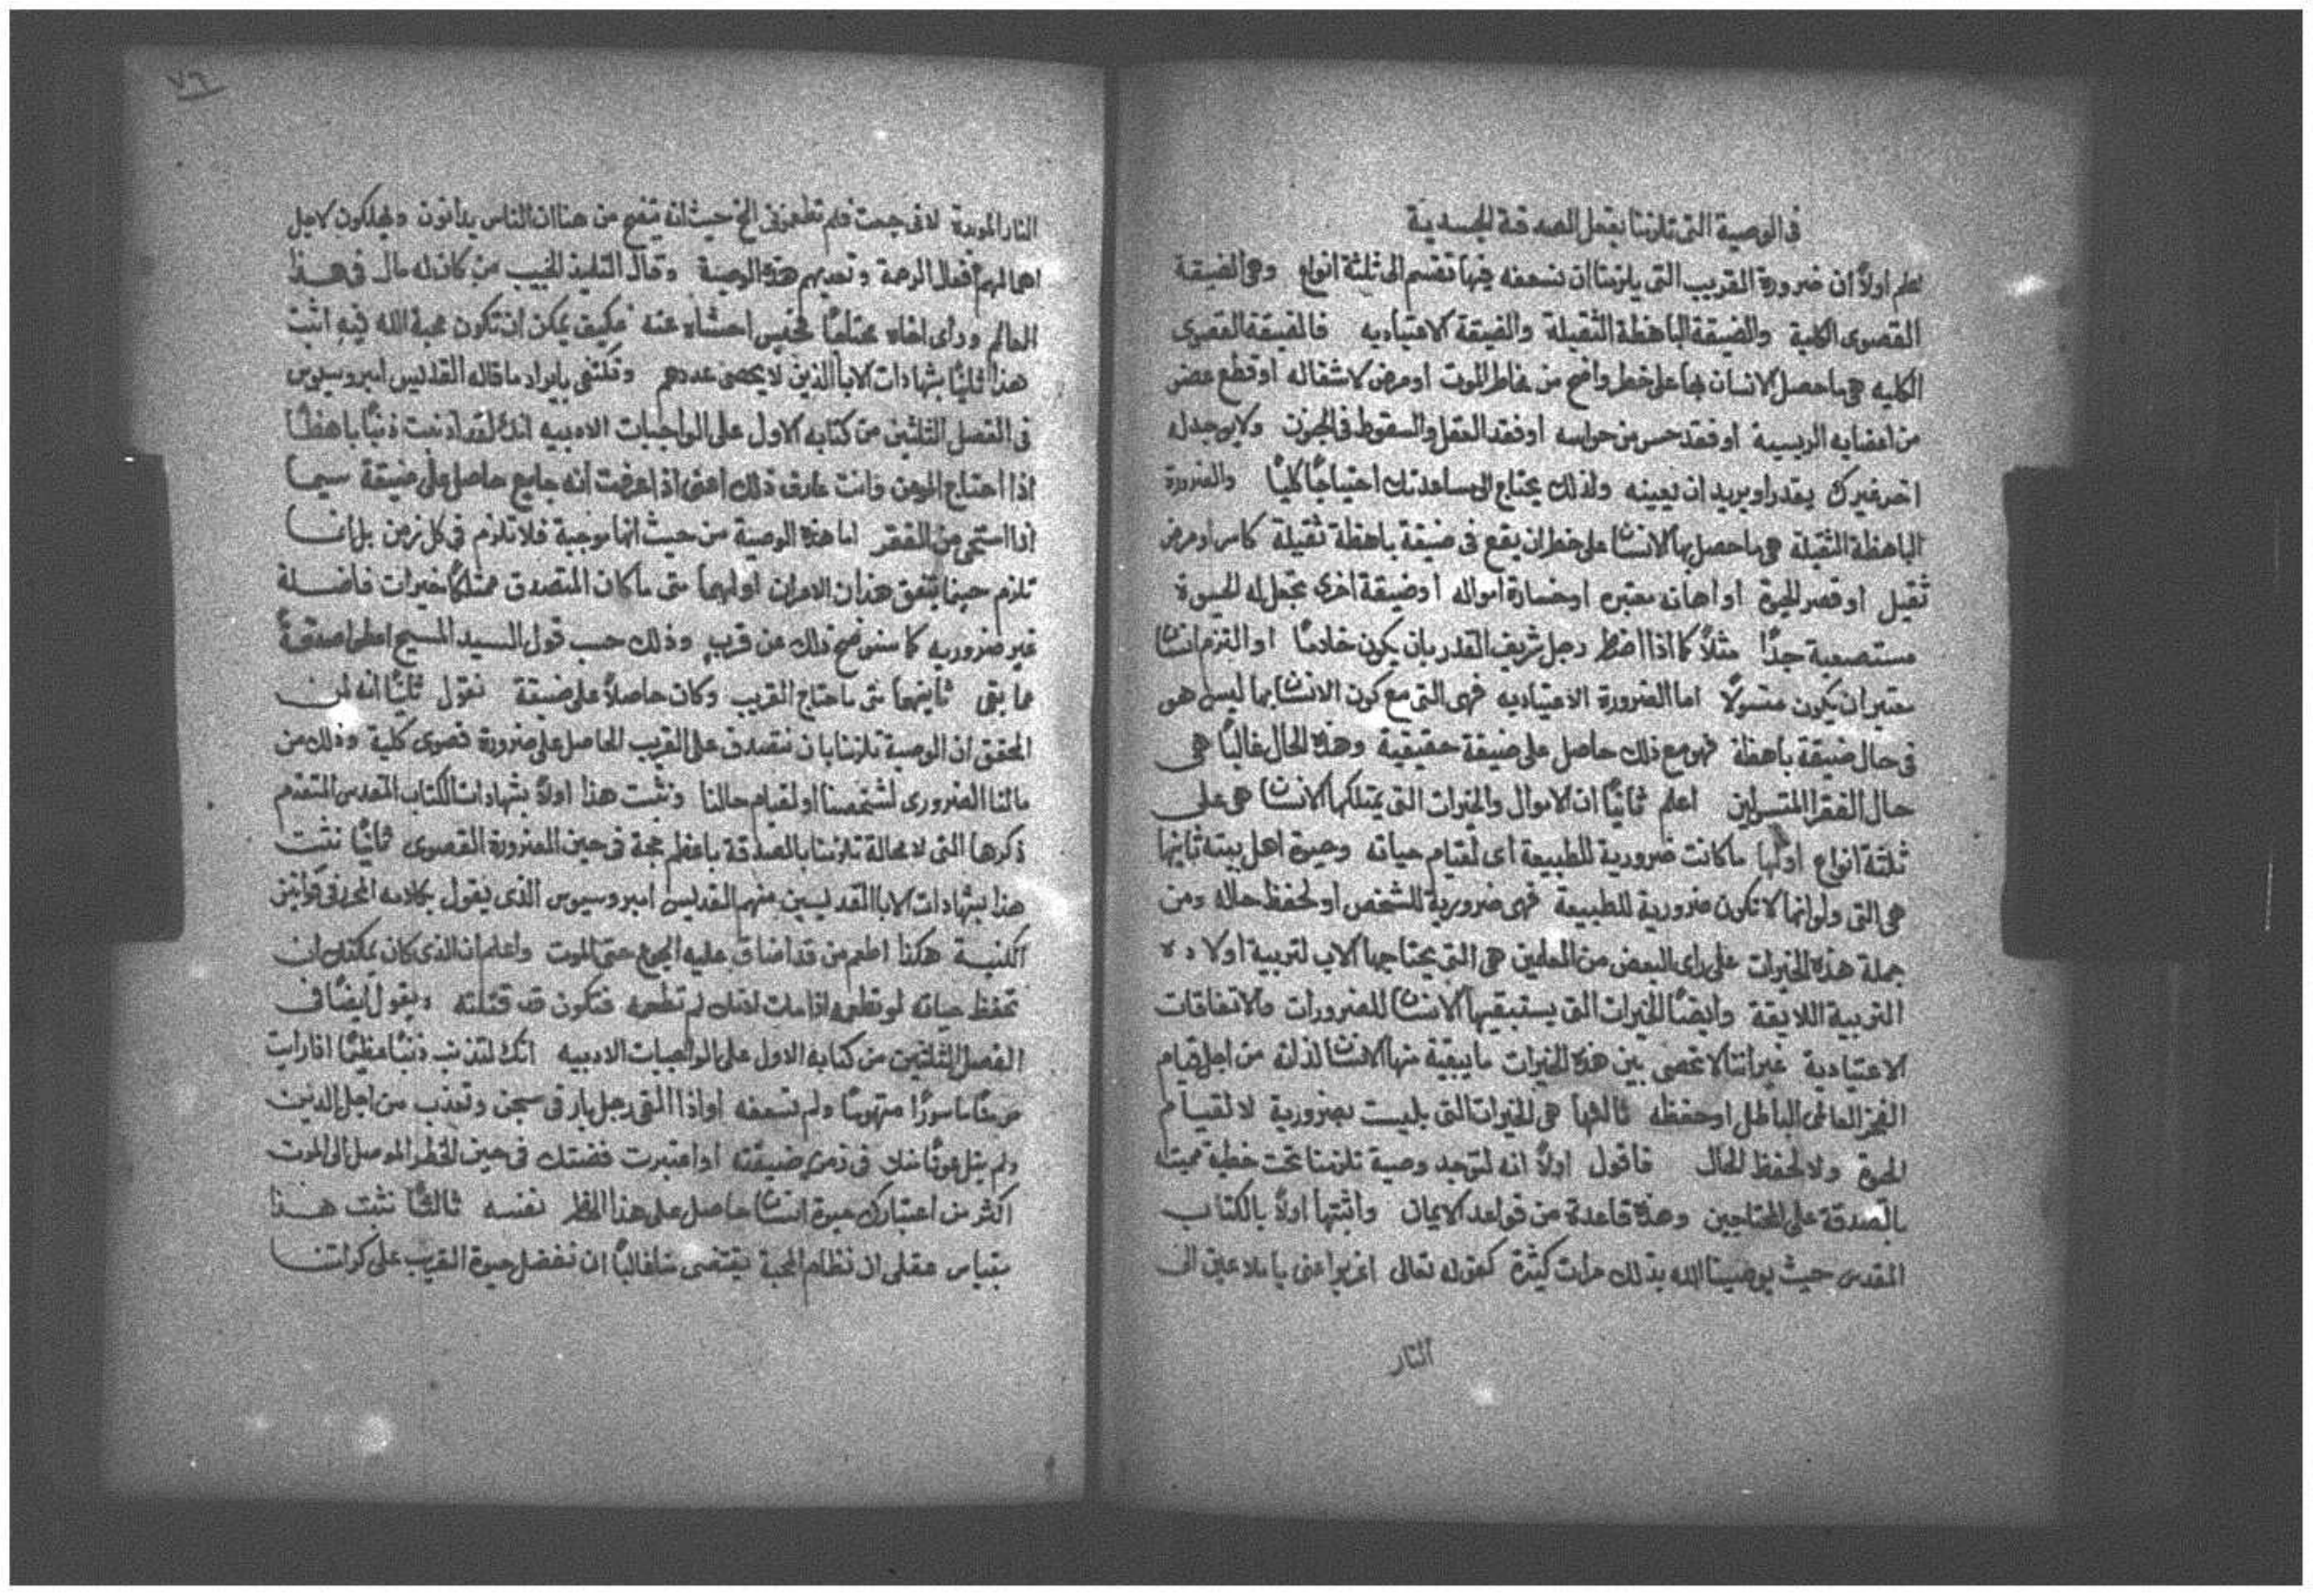 في الوصية التي تلزمنا بفعل الصدقة الجسدية
اعلم اولاً ان ضرورة القريب التي يلزمنا ان نسعفه فيها تقسم الى ثلثة انواع وهي الضيقة
القصوى الكلية والضيقة الباهظة الثقيلة والضيقة الاعتياديه فالضيقة القصوى
الكليه هي ما حصل الانسان بها على خطر واضح من مخاطر الموت او مرض لا شفا له او قطع عضو
من اعضايه الريسية او فقد حس من حواسه او فقد العقل والسقوط في الجنون ولا يوجد له
اخر غيرك يقدر او يريد ان يعينه ولذلك يحتاج الى مساعدتك احتياجًا كليًا والضرورة
الباهظة الثقيلة هي ما حصل بها الانسان على خطر ان يقع في ضيقة باهظة ثقيلة كاسر او مرض
ثقيل او قصر الحيوة او اهانه معتبره او خسارة امواله او ضيقة اخرى تجعل له الحيوة
مستصعبة جدًا مثلاً كما اذا اضطر رجل شريف القدر بان يكون خادمًا او التزم انسان
معتبر ان يكون متسولاً اما الضرورة الاعتياديه فهي التي مع كون الانسان بها ليس هو
في حال ضيقة باهظة فهو مع ذلك حاصل على ضيقة حقيقية وهذه الحال غالبًا هي
حال الفقرا المتسولين اعلم ثانيًا ان الاموال والخيرات التي يمتلكها الانسان هي على
ثلثة انواع اولها ما كانت ضرورية للطبيعة اي لقيام حياته وحيوة اهل بيته ثانيها
هي التي ولو انها لا تكون ضرورية للطبيعة فهي ضرورية للشخص او لحفظ حاله ومن
جملة هذه الخيرات على راي البعض من المعلمين هي التي يحتاجها الاب لتربية اولاده
التربية اللايقة وايضًا الخيرات التي يستبقيها الانسان للضرورات والاتفاقات
الاعتيادية غير اننا لا نحصي بين هذه الخيرات ما يبقيه منها الانسان لذاته من اجل قيام
الفخر العالمي الباطل او حفظه ثالثها هي الخيرات التي ليست بضرورية لا لقيام
الحيوة ولا لحفظ الحال فاقول اولاً انه لتوجد وصية تلزمنا تحت خطية مميته
بالصدقة على المحتاجين وهذه قاعدة من قواعد الايمان واثبتها اولاً بالكتاب
المقدس حيث يوصينا الله بذلك مرات كثيرة كقوله تعالى اغربوا عني يا ملاعين الى
النار
٧٦
النار الموبدة لاني جعت فلم تطعموني الخ حيث انه يتضح من هنا ان الناس يدانون ويهلكون لاجل
اهمالهم افعال الرحمة وتعديهم هذه الوصية وقال التلميذ الحبيب من كان له مال في هذا
العالم وراى اخاه محتاجًا فحبس احشاه عنه فكيف يمكن ان تكون محبة الله فيه اثبت
هذا ثانيًا بشهادات الابا الذين لا يحصى عددهم ونكتفي بايراد ما قاله القديس امبروسيوس
في الفصل الثلثين من كتابه الاول على الواجبات الادبيه انك لقد اذنبت ذنبًا باهظًا
اذا احتاج المومن وانت عارف ذلك اعني اذا عرفت انه جايع حاصل على ضيقة سيما
اذا استحى من الفقر اما هذه الوصية من حيث انها موجبة فلا تلزم في كل زمن بل انما
تلزم حينما يتفق هذان الامران اولهما متى ما كان المتصدق ممتلكًا خيرات فاضلة
غير ضروريه كما سنوضح ذلك عن قرب وذلك حسب قول السيد المسيح اعطوا صدقةً
مما بقي ثانيهما متى ما احتاج القريب وكان حاصلاً على ضيقة نقول ثانيًا انه لمن
المحقق ان الوصية تلزمنا بان نتصدق على القريب الحاصل على ضرورة قصوى كلية وذلك من
مالنا الضروري لشخصنا او لقيام حالنا ونثبت هذا اولاً بشهادات الكتاب المقدس المتقدم
ذكرها التي لا محالة تلزمنا بالصدقة باعظم حجة في حين الضرورة القصوى ثانيًا نثبت
هذا بشهادات الابا القديسين منهم القديس امبروسيوس الذي يقول بكلامه المحرر في قوانين
الكنيسة هكذا اطعم من قد اضاق عليه الجوع حتى الموت واعلم ان الذي كان يمكنك ان
تحفظ حياته لو تطعمه اذا مات لانك لم تطعمه فتكون قد قتلته ويقول ايضًا في
الفصل الثلثين من كتابه الاول على الواجبات الادبيه انك لتذنب ذنبًا عظيمًا اذا رايت
مومنًا ماسورًا متهومًا ولم تسعفه او اذا التقى رجل بار في سجن وتعذب من اجل الدين
ولم ينل عونًا منك في زمن ضيقته او اعتبرت فضتك في حين الخطر الموصل الى الموت
اكثر من اعتبارك حيوة انسان حاصل على هذا الخطر نفسه ثالثًا نثبت هذا
بقياس عقلي ان نظام المحبة يقتضي منا غالبًا ان نفضل حيوة القريب على كرامتنا